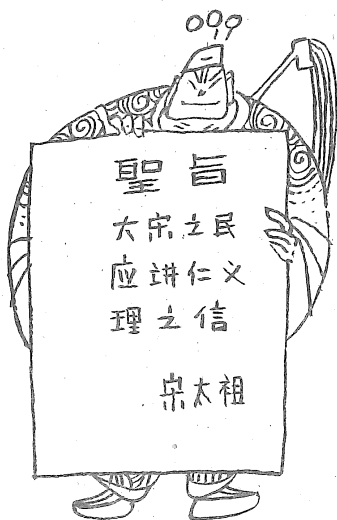 聖旨
大宋之民
应讲仁义
理之信
宋太祖